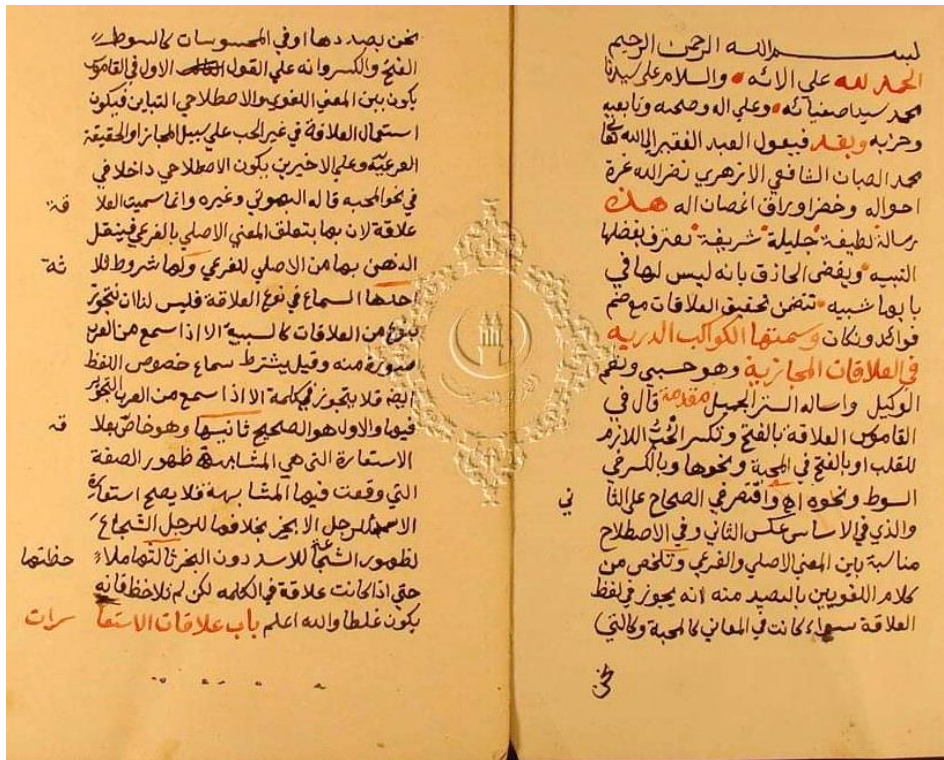 بسم الله الرحمن الرحيم
الحمد لله على الائه والسلام على سيدنا
محمد سيد اصفيائه وعلى اله وصحبه وتابعيه
وحزبه وبعد فيقول العبد الفقير الى الله تعالى
محمد الصبان الشافعي الازهري نضر الله غرة
احواله وخضر اوراق اغصان اله هذه
رسالة لطيفة جليلة شريفة يعترف بفضلها
النبيه ويقضى الحاذق بانه ليس لها في
بابها شبيه تتضمن تحقيق العلاقات مع ضم
فوائد ونكات وسمتها الكواكب الدريه
في العلاقات المجازية وهو حسبى ونعم
الوكيل واساله الستر الجميل مقدمة قال في
القاموس العلاقة بالفتح وتكسر الحُبُّ اللازم
للقلب او بالفتح في المحبة ونحوها وبالكسر في
السوط ونحوه اه واقتصر في الصحاح على الثا ني
والذي في الاساس عكس الثاني وفي الاصطلاح
مناسبة بين المعنى الاصلي والفرعي وتلخص من
كلام اللغويين بالبصيد منه انه يجوز في لفظ
العلاقة سواء كانت في المعاني كالمحبة وكالتي
نحن
نحن بصددها او في المحسوسات كالسوط
الفتح والكسر وانه على القول الاول في القاموس
يكون بين المعنى اللغوي والاصطلاحي التباين فيكون
استعمال العلاقة في غير الحب على سبيل المجاز او الحقيقة
العرفية وعلى الاخيرين يكون الاصطلاحي داخلا في
في نحو المحبه قاله البهوتي وغيره وانما سميت العلا قة
علاقة لان بها يتعلق المعنى الاصلي بالفرعي فينتقل
الذهن بها من الاصلي للفرعي ولها شروط ثلا ثة
احدها السماع في نوع العلاقة فليس لنا ان نتجوّز
بنوع من العلاقات كالسببية الا اذا سمع من العرب
صورة منه وقيل يشترط سماع خصوص اللفظ
ايضا فلا يتجوز في كلمة الا اذا سمع من العرب التجوّز
فيها والاول هو الصحيح ثانيها وهو خاصّ بعلا قه
الاستعارة التي هي المشابهة ظهور الصفة
التي وقعت فيها المشابهة فلا يصح استعارة
الاسد للرجل الابخر بخلافها للرجل الشجاع
لظهور الشجاعة للاسد دون البخر ثالثها ملا حظتها
حتى اذا كانت علاقة في الكلمه لكن لم تلاحظ فانه
يكون غلطا والله اعلم باب علاقات الاستعا رات